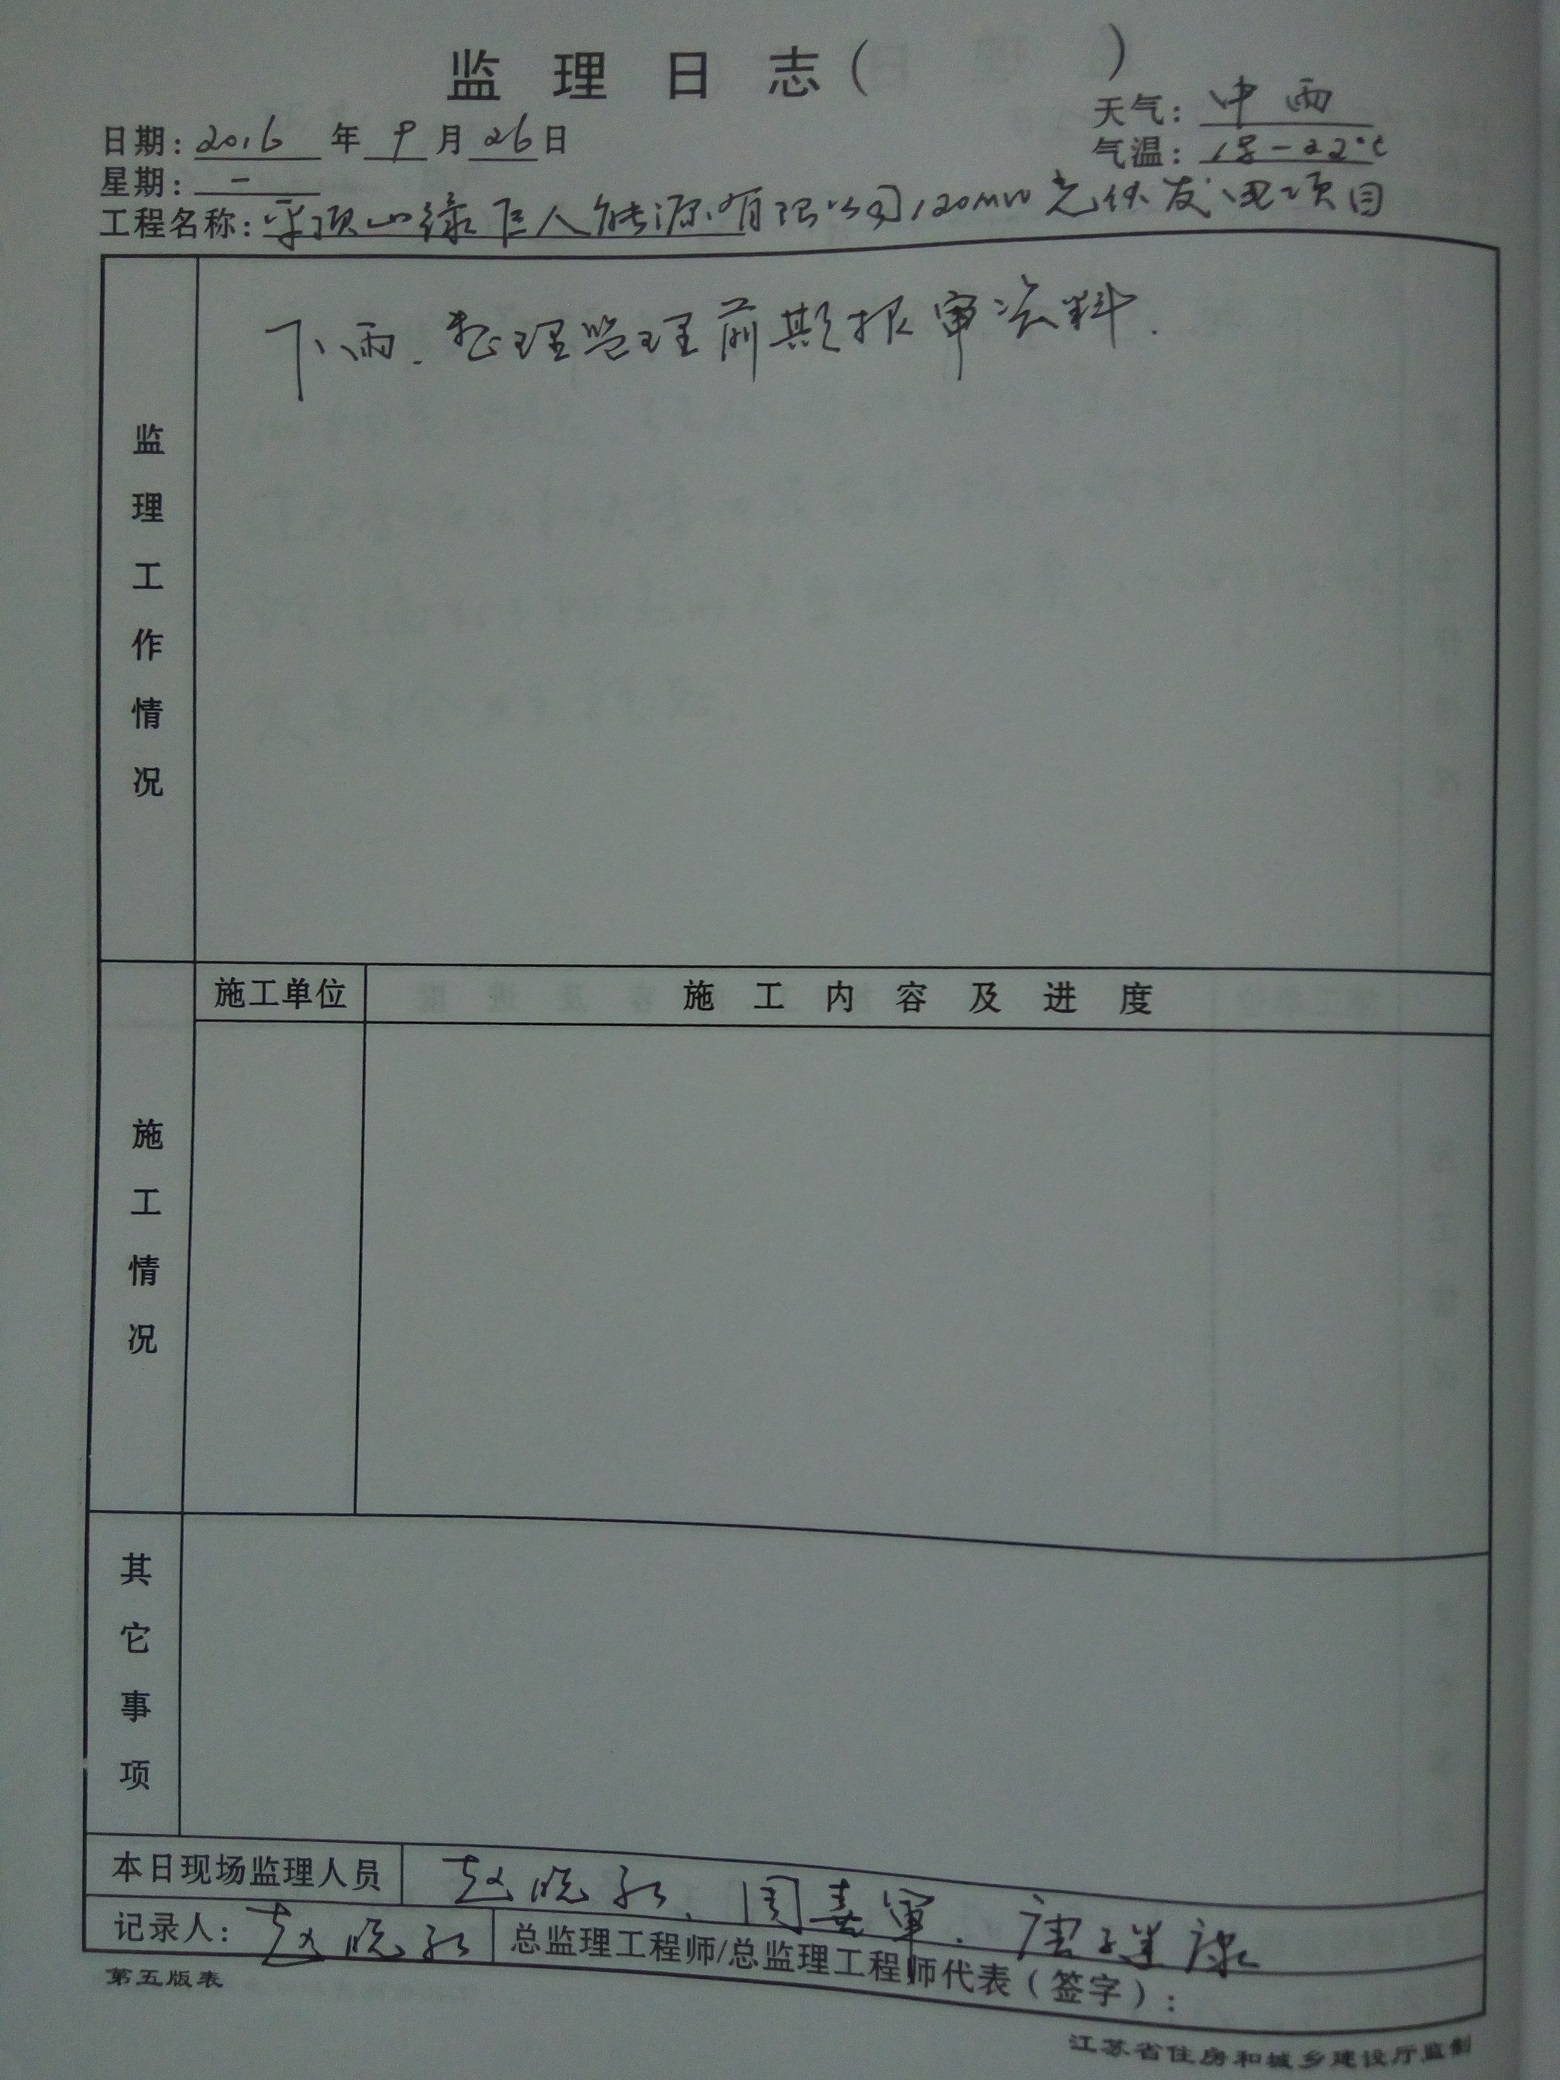 监理日志(    )
天气：中雨
日期：2016年9月26日
气温：18-22℃
星期：一
工程名称：平顶山绿巨人能源有限公司120MW光伏发电项目
监理工作情况
下雨．整理监理前期报审资料．
施工情况
施工单位 施工内容及进度
其它事项
本日现场监理人员 赵晓 、周喜军．唐 康
记录人：赵晓 总监理工程师/总监理工程师代表（签字）：
第五版表
江苏省住房和城乡建设厅监制